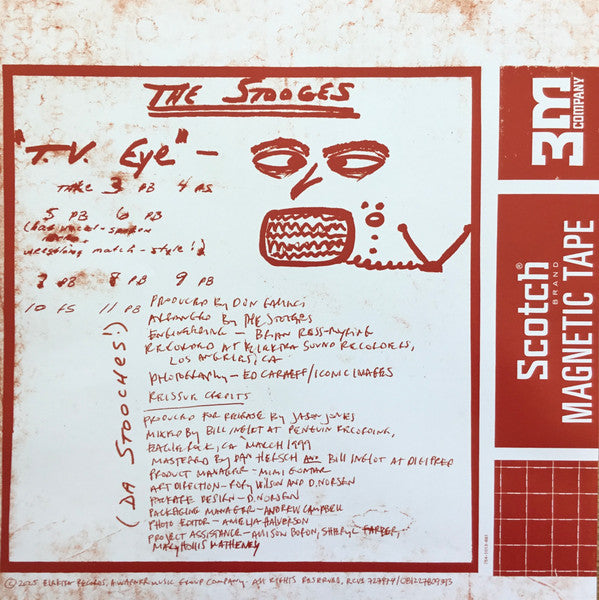 THE STOOGES
"T.V. Eye" —
TAKE 3 PB 4 FS
5 PB 6 PB
(has vocal-spoken
wrestling match-style!)
7 PB 8 PB 9 PB
10 FS 11 PB
(DA STOOCHES!)
PRODUCED BY DON GALLUCCI
ARRANGED BY THE STOOGES
ENGINEERING — BRIAN ROSS-MYRING
RECORDED AT ELEKTRA SOUND RECORDERS,
LOS ANGELES, CA
PHOTOGRAPHY — ED CARAEFF/ICONIC IMAGES
REISSUE CREDITS
PRODUCED FOR RELEASE BY JASON JONES
MIXED BY BILL INGLOT AT PENGUIN RECORDING,
EAGLE ROCK, CA MARCH 1999
MASTERED BY DAN HERSCH AND BILL INGLOT AT DIGIPREP
PRODUCT MANAGER — MIMI
ART DIRECTION — RORY WILSON AND D.NORSEN
PACKAGE DESIGN — D.NORSEN
PACKAGING MANAGER — ANDREW CAMPBELL
PHOTO EDITOR — AMELIA HALVERSON
PROJECT ASSISTANCE — ALLISON BORON, SHERYL FARBER,
MARYHOLLIS MATHENEY
3M
COMPANY
Scotch®
BRAND
MAGNETIC TAPE
© 2025 ELEKTRA RECORDS, A WARNER MUSIC GROUP COMPANY. ALL RIGHTS RESERVED.